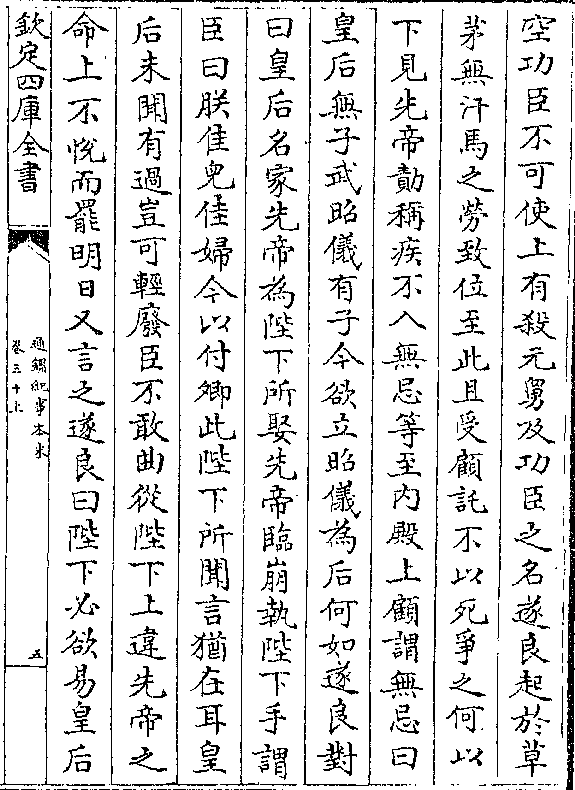 空功臣不可使上有殺元舅及功臣之名遂良起於草
茅無汗馬之勞致位至此且受顧託不以死爭之何以
下見先帝勣稱疾不入無忌等至內殿上顧謂無忌曰
皇后無子武昭儀有子今欲立昭儀為后何如遂良對
曰皇后名家先帝為陛下所娶先帝臨崩執陛下手謂
臣曰朕佳兒佳婦今以付卿此陛下所聞言猶在耳皇
后未聞有過豈可輕廢臣不敢曲從陛下上違先帝之
命上不悅而罷明日又言之遂良曰陛下必欲易皇后
欽定四庫全書
通鑑紀事本末
卷三十上
五